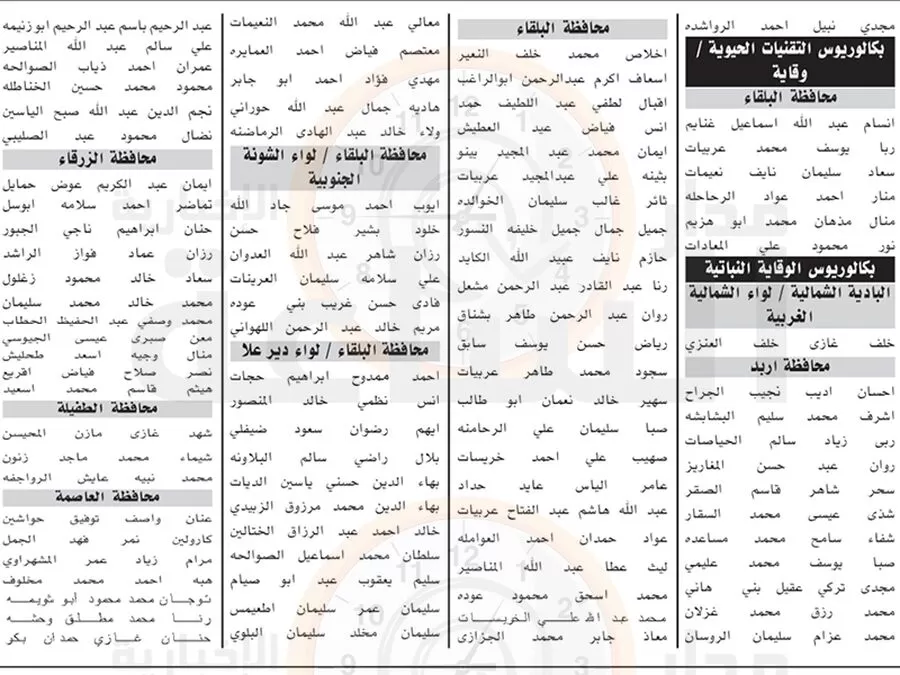 مجدي نبيل احمد الرواشده
بكالوريوس التقنيات الحيوية /
وقاية
محافظة البلقاء
انسام عبد الله اسماعيل غنايم
ربا يوسف محمد عربيات
سعاد سليمان نايف نعيمات
منار احمد عواد الرحاحله
منال مذهان محمد ابو هزيم
نور محمود علي المعادات
بكالوريوس الوقاية النباتية
البادية الشمالية / لواء الشمالية
الغربية
خلف غازى خلف العنزي
محافظة اربد
احسان اديب نجيب الجراح
اشرف محمد سليم البشابشه
ربى زياد سالم الحياصات
روان عبد حسن المغاريز
سحر شاهر قاسم الصقر
شذى عيسى محمد السقار
شفاء سامح محمد مساعده
صبا يوسف محمد عليمي
مجدى تركي عقيل بني هاني
محمد رزق محمد غزلان
محمد عزام سليمان الروسان
محافظة البلقاء
اخلاص محمد خلف النعير
اسعاف اكرم عبدالرحمن ابوالراغب
اقبال لطفي عبد اللطيف حمد
انس فياض عيد العطيش
ايمان محمد عبد المجيد بينو
بثينه علي عبدالمجيد عربيات
ثائر غالب سليمان الخوالده
جميل جمال جميل خليفه النسور
حازم نايف عبد الله الكايد
رنا عبد القادر عبد الرحمن مشعل
روان عبد الرحمن طاهر بشناق
رياض حسن يوسف سابق
سجود محمد طاهر عربيات
سهير خالد نعمان ابو طالب
صبا سليمان علي الرحامنه
صهيب علي احمد خريسات
عامر الياس عايد حداد
عبد الله هاشم عبد الفتاح عربيات
عواد حمدان احمد العوامله
ليث عطا عبد الله المناصير
محمد اسحق محمود عوده
محمد عبد الله علي الخريسات
معاذ جابر محمد الجزازى
معالي عبد الله محمد النعيمات
معتصم فياض احمد العمايره
مهدي فؤاد احمد ابو جابر
هاديه جمال عبد الله حوراني
ولاء خالد عبد الهادى الرماضنه
محافظة البلقاء / لواء الشونة
الجنوبية
ايوب احمد موسى جاد الله
خلود بشير فلاح حسن
رزان شاهر عبد الله العدوان
علي سلامه سليمان العرينات
فادى حسن غريب بني عوده
مريم خالد عبد الرحمن اللهواني
محافظة البلقاء / لواء دير علا
احمد ممدوح ابراهيم حجات
انس نظمي خالد المنصور
ايهم رضوان سعود ضيفلي
بلال راضي سالم البلاونه
بهاء الدين حسني ياسين الديات
بهاء الدين محمد مرزوق الزبيدي
خالد احمد عبد الرزاق الختالين
سلطان محمد اسماعيل الصوالحه
سليم يعقوب عبد ابو صيام
سليمان عمر سليمان اطعيمس
سليمان مخلد سليمان البلوي
عبد الرحيم باسم عبد الرحيم ابوزنيمه
علي سالم عبد الله المناصير
عمران احمد ذياب الصوالحه
محمود محمد حسين الخناطله
نجم الدين عبد الله صبح الياسين
نضال محمود عبد الصليبي
محافظة الزرقاء
ايمان عبد الكريم عوض حمايل
تماضر احمد سلامه ابوسل
حنان ابراهيم ناجي الجبور
رزان عماد فواز الراشد
سعاد خالد محمود زغلول
محمد خالد محمد سليمان
محمد وصفي عبد الحفيظ الحطاب
معن صبرى عيسى الجيوسي
منال وجيه اسعد طحليش
نصر صلاح فياض اقريع
هيثم قاسم محمد اسعيد
محافظة الطفيلة
شهد غازى مازن المحيسن
شيماء محمد ماجد زنون
محمد نبيه عايش الرواجفه
محافظة العاصمة
عنان واصف توفيق حواشين
كارولين نمر فهد الجمل
مرام زياد عمر المشهراوي
هبه احمد محمد مخلوف
توجان محمد محمود أبو شويمه
رنا محمد مطلق وحشه
حنان غازي حمدان بكر